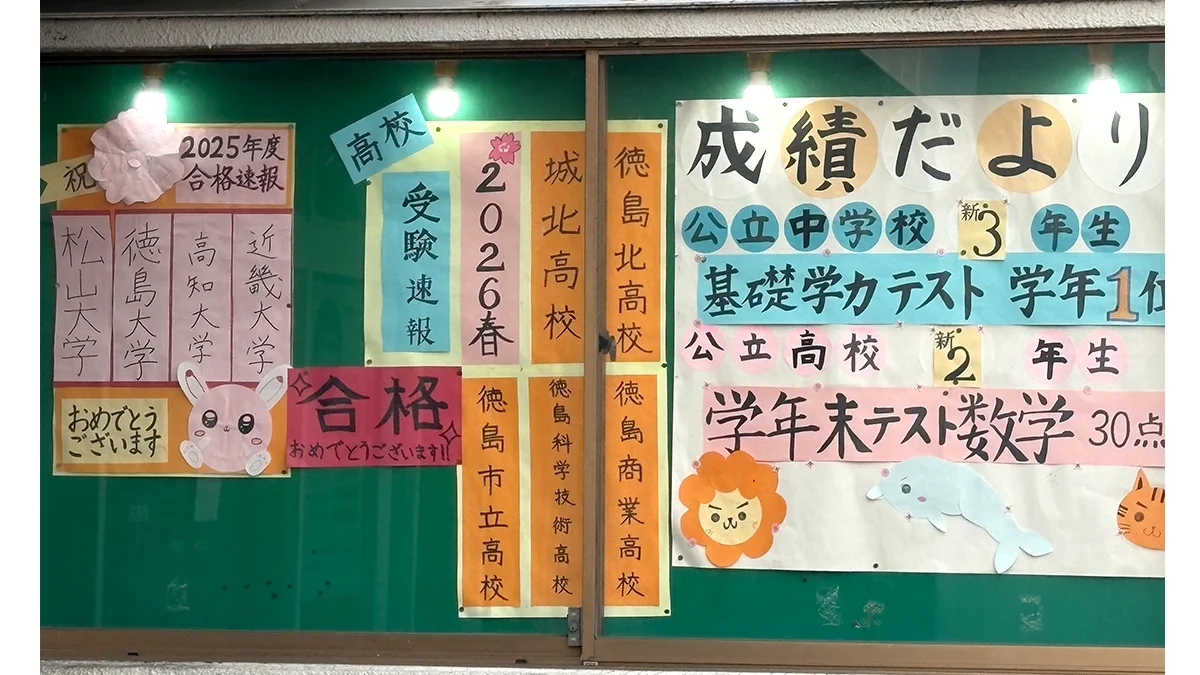 祝
2025年度
合格速報
近畿大学
高知大学
徳島大学
松山大学
おめでとう
ございます
高校
受験速報
2026春
城北高校
徳島北高校
合格
おめでとうございます!!
徳島市立高校
徳島科学技術高校
徳島商業高校
成績だより
公立中学校 新3年生
基礎学力テスト 学年1位
公立高校 新2年生
学年末テスト数学 30点